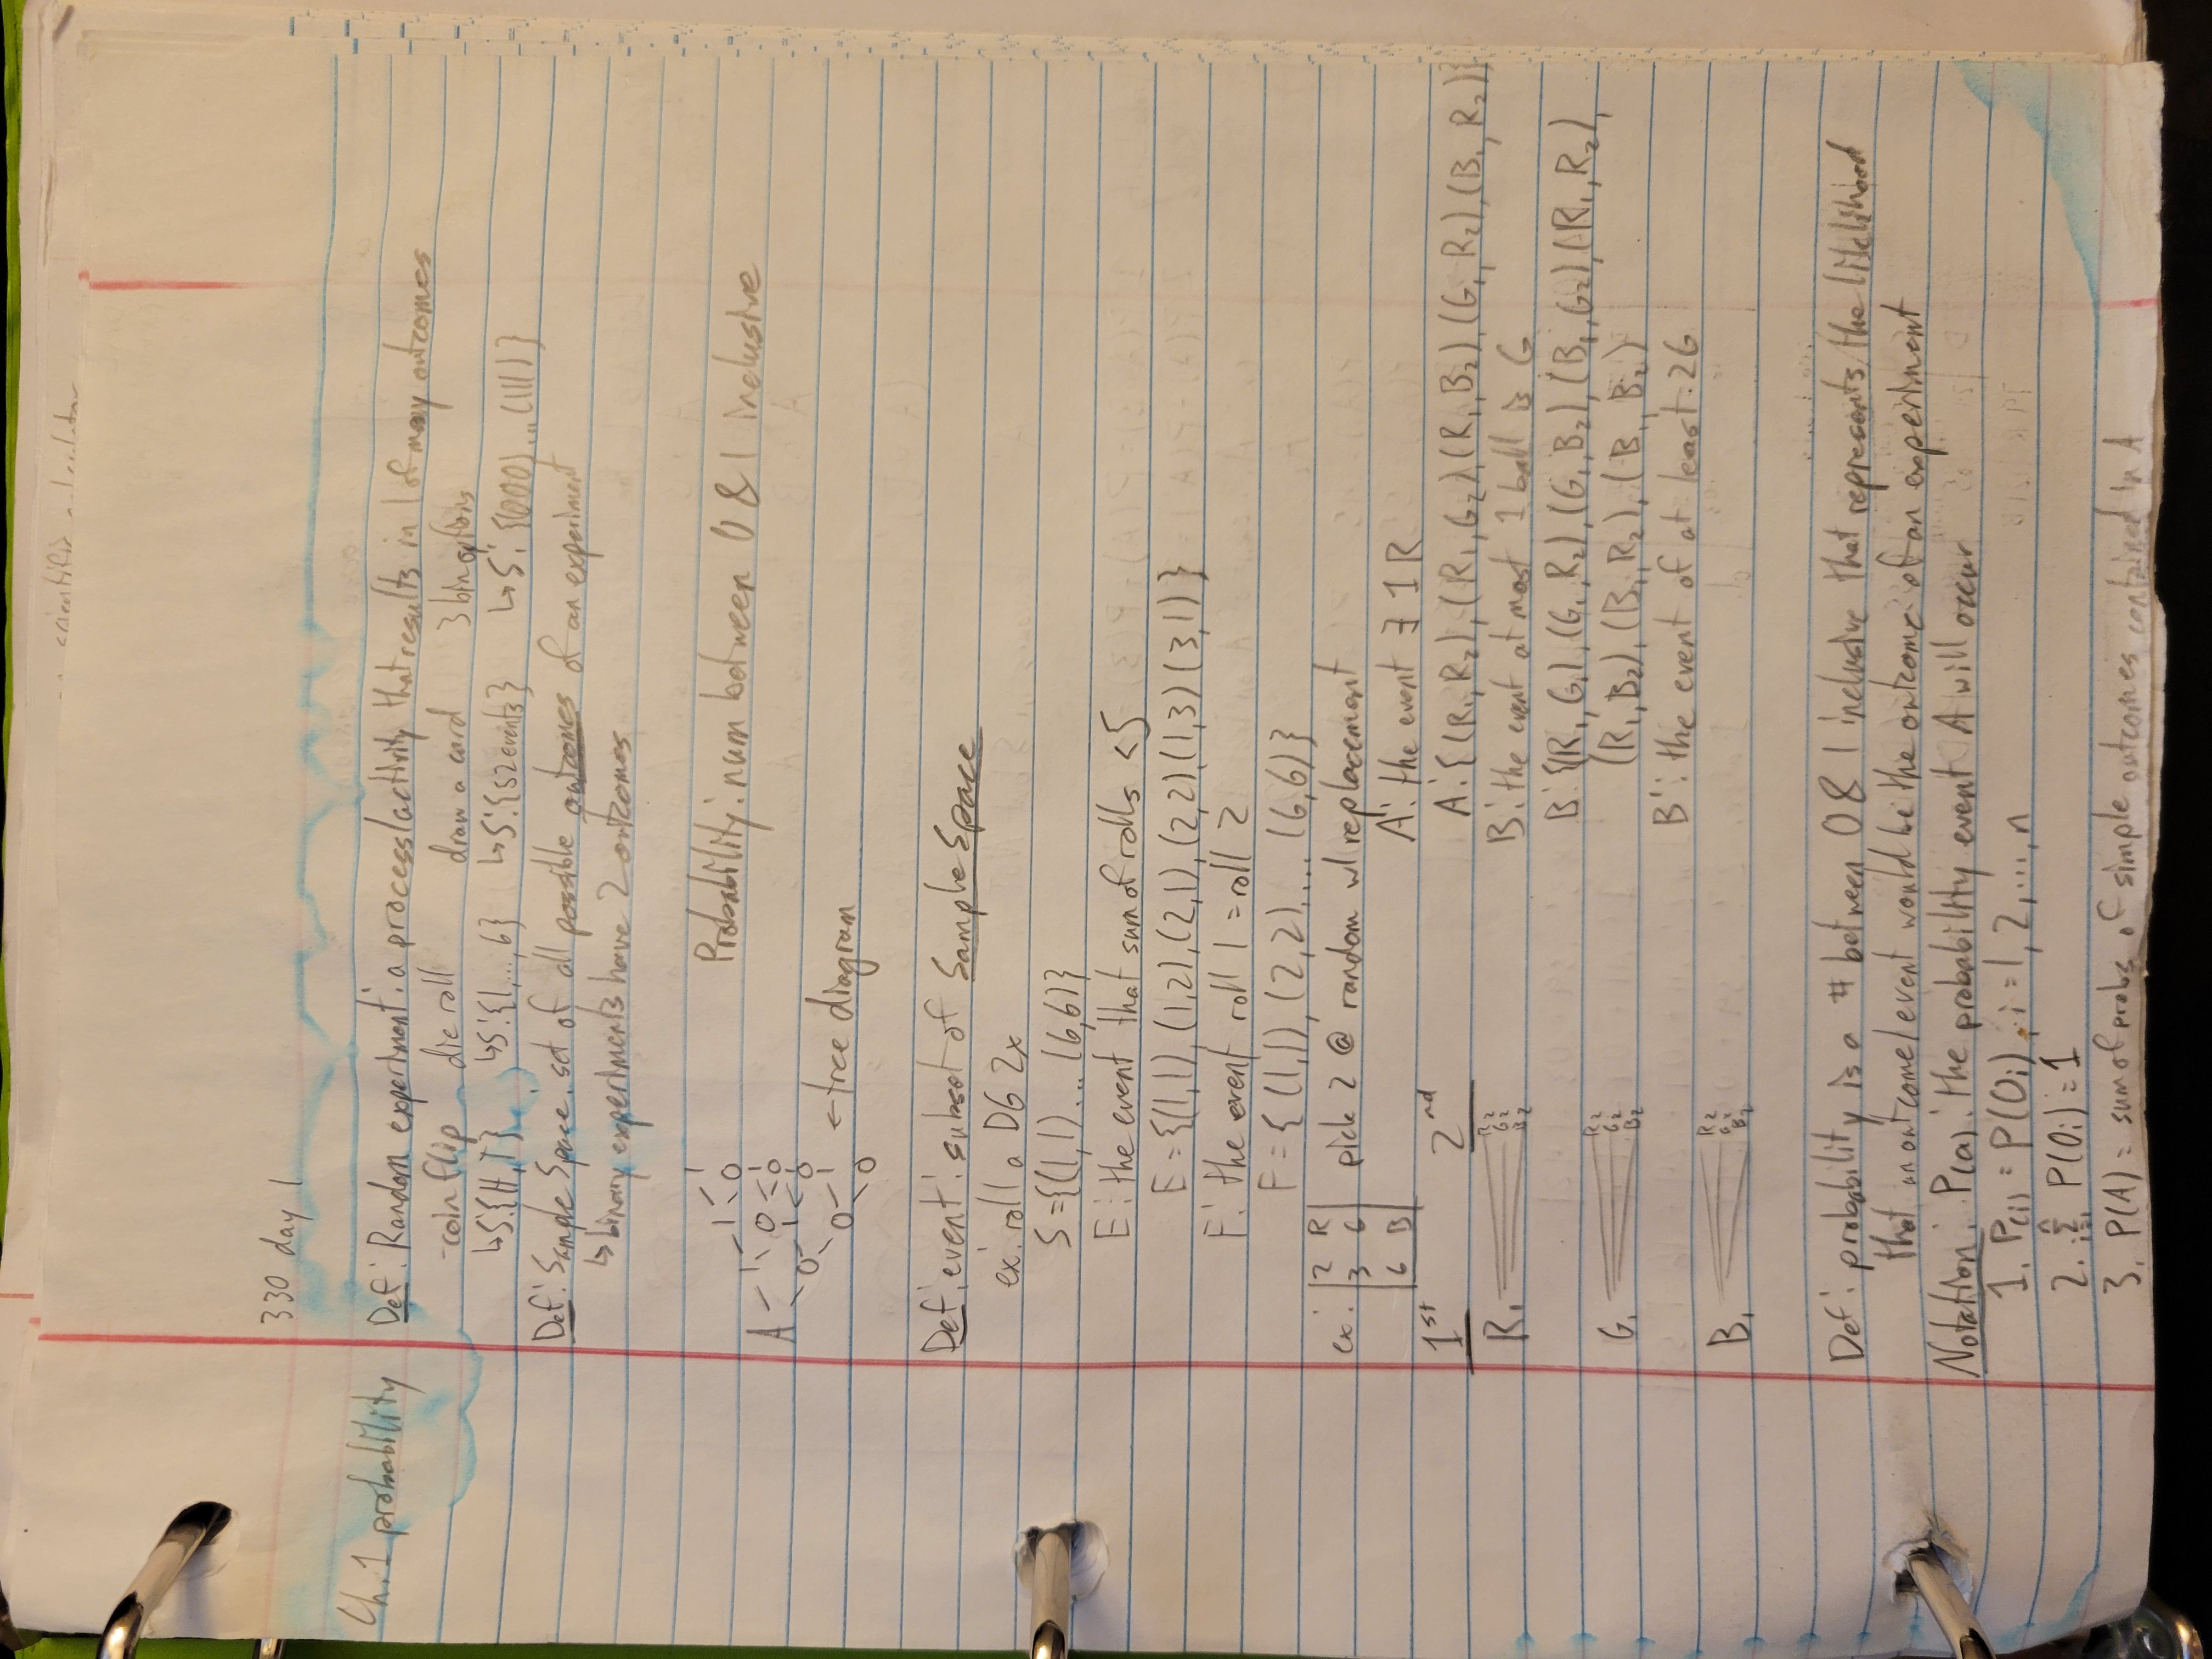 scientific calculator
330 day 1
Ch. 1 probability
Def: Random experiment: a process/activity that results in 1 of many outcomes
-coin flip die roll draw a card 3 bin options
↳S:{H,T} ↳S:{1,...,6} ↳S:{52 events} ↳S:{(000)...(111)}
Def: Sample Space: set of all possible outcomes of an experiment
↳binary experiments have 2 outcomes
Probability: num between 0 & 1 inclusive
1
1 0
1 1
A 0 0
1
0 1 0
0 1
0
←tree diagram
Def: event: subset of Sample Space
ex: roll a D6 2x
S={(1,1)...(6,6)}
E: the event that sum of rolls <5
E={(1,1),(1,2),(2,1),(2,2),(1,3)(3,1)}
F: the event roll 1 = roll 2
F={(1,1),(2,2),...(6,6)}
ex: 2 R pick 2 @ random w/ replacement
3 G
6 B
A: the event ∃ 1 R
A:{(R₁,R₂),(R₁,G₂),(R₁,B₂),(G₁,R₂),(B₁,R₂)}
B: the event at most 1 ball is G
B:{(R₁,G₁),(G₁,R₂),(G₁,B₂),(B₁,G₂),(R₁,R₂),
(R₁,B₂),(B₁,R₂),(B₁,B₂)
B': the event of at least 2G
1st 2nd
R₁ R₂
G₂
B₂
G₁ R₂
G₂
B₂
B₁ R₂
G₂
B₂
Def: probability is a # between 0 & 1 inclusive that represents the likelihood
that an outcome/event would be the outcome of an experiment
Notation: P(a): the probability event A will occur
1. P(i) = P(Oi), i=1,2,...,n
2. n Σ i=1 P(Oi)=1
3. P(A) = sum of probs of simple outcomes contained in A